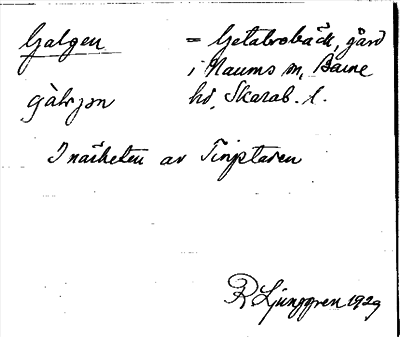 Galgen = Getabrobäck, gård
i Naums sn, Barne
gàlrjən hd, Skarab. l.
I närheten av Tinptaren
R Ljunggren 1929